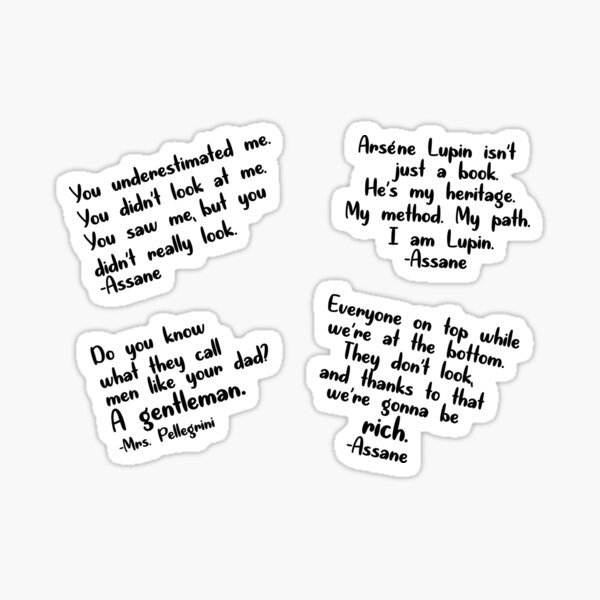 You underestimated me.
You didn't look at me.
You saw me, but you
didn't really look.
-Assane
Arséne Lupin isn't
just a book.
He's my heritage.
My method. My path.
I am Lupin.
-Assane
Do you know
what they call
men like your dad?
A gentleman.
-Mrs. Pellegrini
Everyone on top while
we're at the bottom.
They don't look,
and thanks to that
we're gonna be
rich.
-Assane